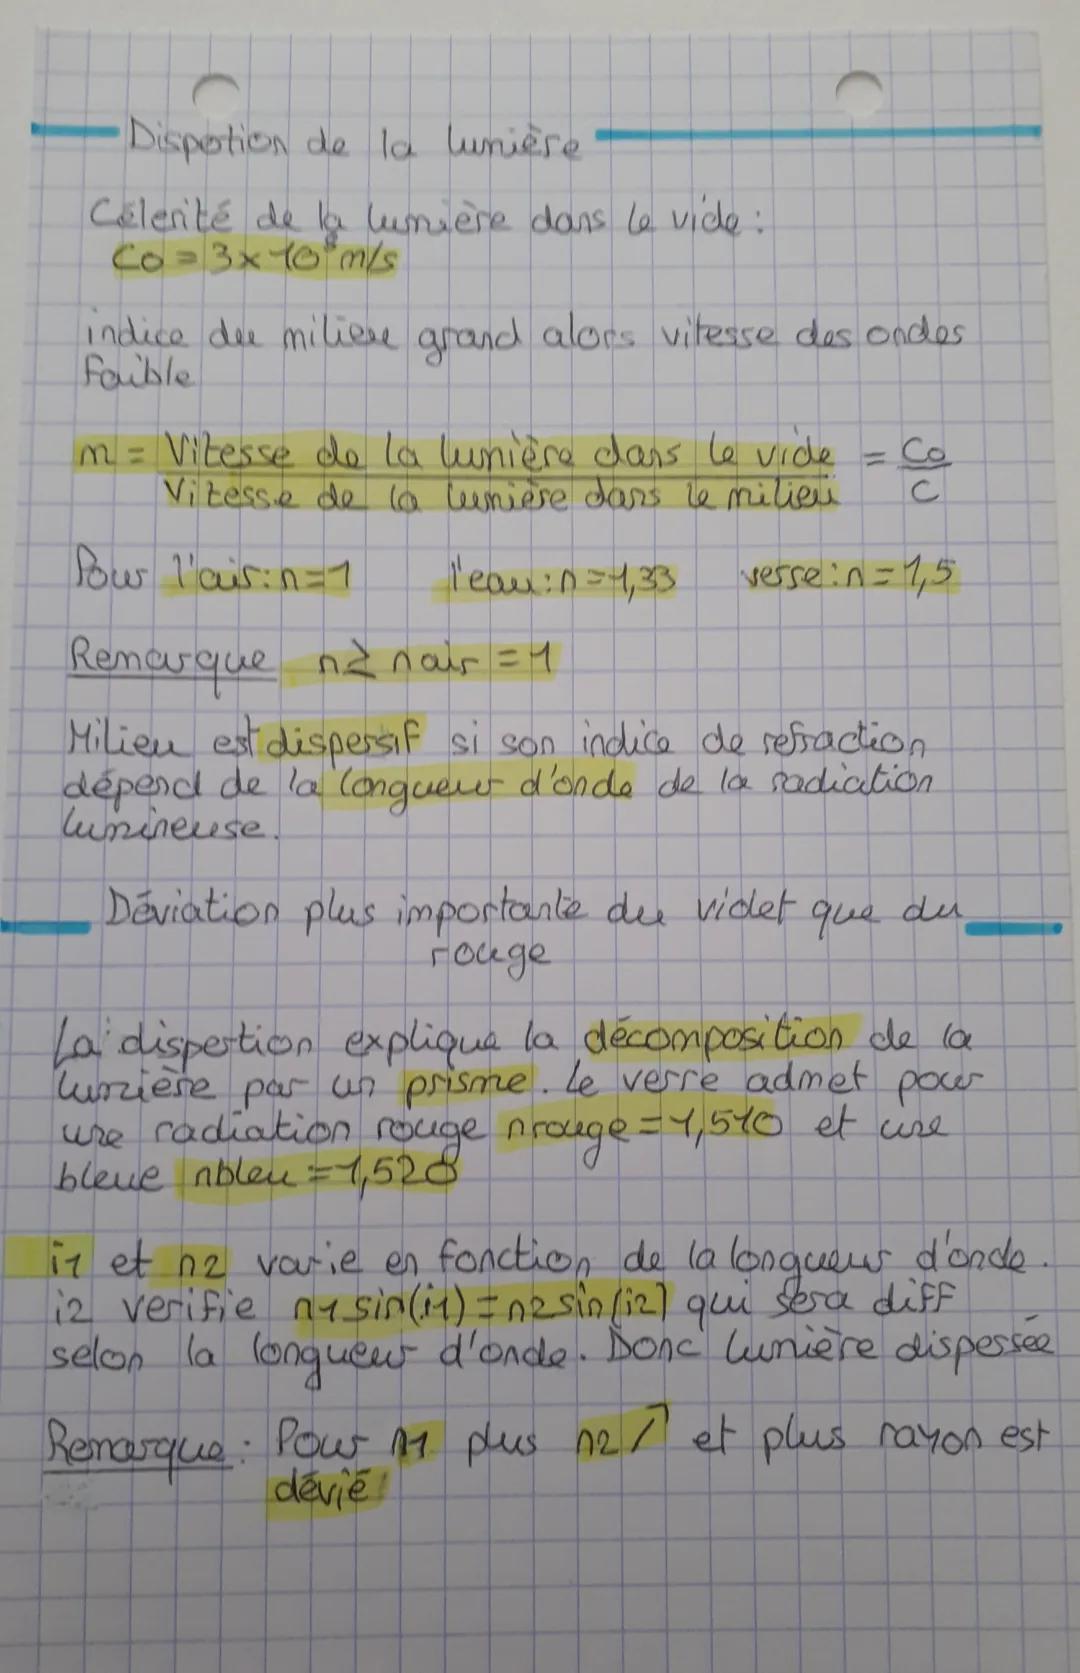 Dispertion de la lumière
Célerité de la lumière dans le vide :
Co = 3 x 10⁸ m/s
indice du milieu grand alors vitesse des ondes
faible
n = Vitesse de la lumière dans le vide = Co
Vitesse de la lumière dans le milieu C
Pour l'air : n = 1 l'eau : n = 1,33 verre : n = 1,5
Remarque n ≥ nair = 1
Milieu est dispersif si son indice de refraction
dépend de la longueur d'onde de la radiation
lumineuse.
Déviation plus importante du violet que du
rouge
La dispertion explique la décomposition de la
lumière par un prisme. Le verre admet pour
une radiation rouge nrouge = 1,510 et une
bleue nbleu = 1,520
i1 et n2 varie en fonction de la longueur d'onde.
i2 verifie n1 sin(i1) = n2 sin(i2) qui sera diff
selon la longueur d'onde. Donc lumière dispersée
Remarque : Pour n1 plus n2 ↗ et plus rayon est
dévié